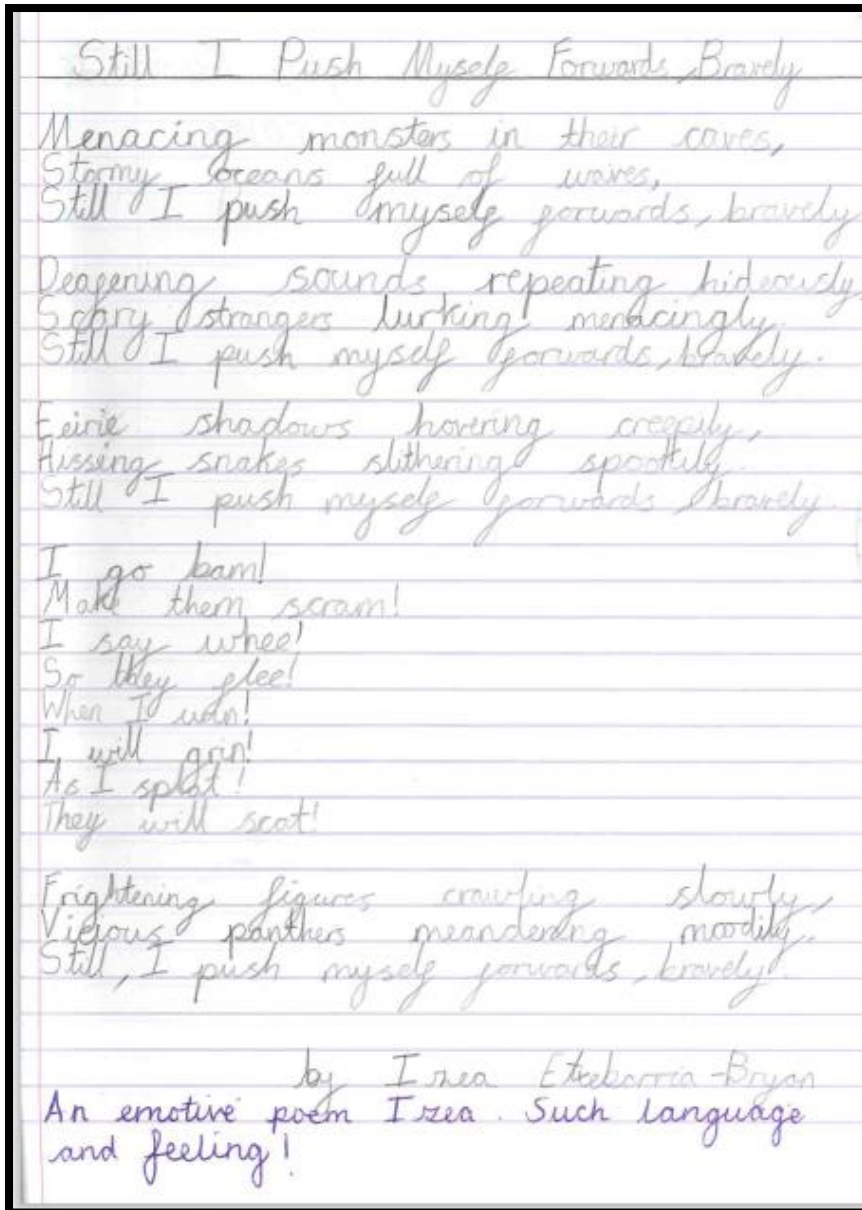 Still I Push Myself Forwards, Bravely
Menacing monsters in their caves,
Stormy oceans full of waves,
Still I push myself forwards, bravely
Deafening sounds repeating hideously,
Scary strangers lurking menacingly.
Still I push myself forwards, bravely.
Eeirie shadows hovering creepily,
Hissing snakes slithering spookily.
Still I push myself forwards, bravely.
I go bam!
Make them scram!
I say whee!
So they flee!
When I win!
I will grin!
As I splat!
They will scat!
Frightening figures crawling slowly,
Vicious panthers meandering moodily.
Still, I push myself forwards, bravely.
by Izea Etxebarria-Bryan
An emotive poem Izea. Such language
and feeling!